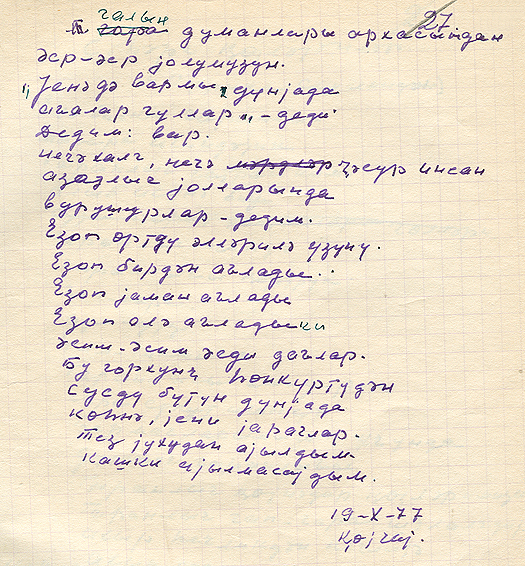 27.
галын
гара думанлары архасындан
әср-әср јолумузун.
„Јенәдә вармы, дунјада
ағалар гуллар“, -деди
Дедим: вар.
нечә халг, нечә мәрдләр ҹәсур инсан
азадлыг јолларында
вурушурлар - дедим.
Езоп өртдү әлләрилә үзүнү.
Езоп бирдән ағлады..
Езоп јаман ағлады
Езоп елә ағладыки
әсим-әсим әсди дағлар.
Бу горхунҹ һөнкүртүдән
сусду бүтүн дүнјада
көһнә, јени јарағлар.
Тез јухудан ајылдым
кашки ајылмасајдым.
19-X-77
Көјчај.